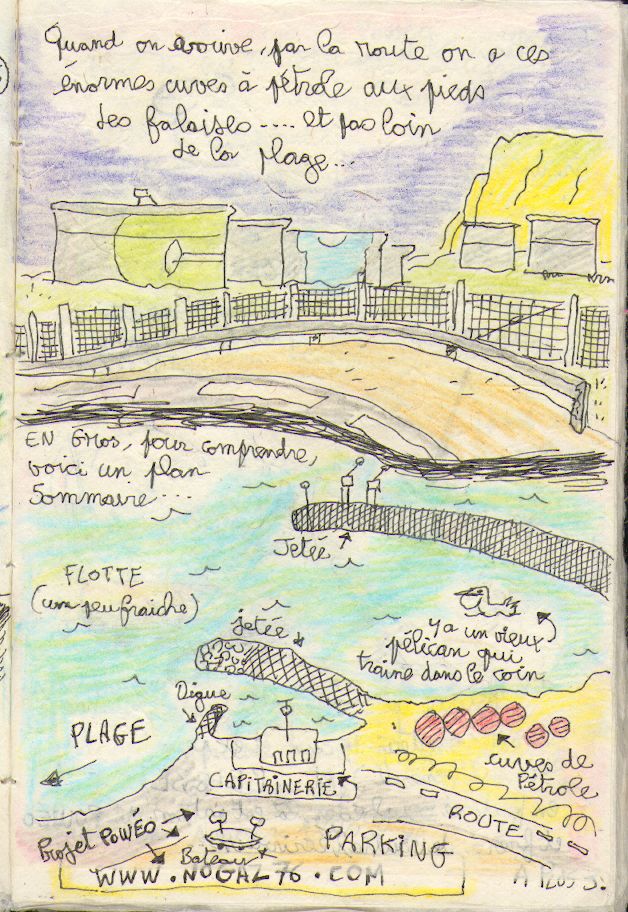 Quand on arrive, par la route on a ces
énormes cuves à pétrole aux pieds
des falaises .... et pas loin
de la plage ...
EN Gros, pour comprendre,
voici un plan
Sommaire ...
Jetée
FLOTTE
(un peu fraiche)
jetée
Y a un vieux
pélican qui
traine dans le coin
Digue
PLAGE
cuves de
Pétrole
CAPITAINERIE
ROUTE
Projet POWÉO
Bateau
PARKING
WWW.NOGAL76.COM
A PLUS